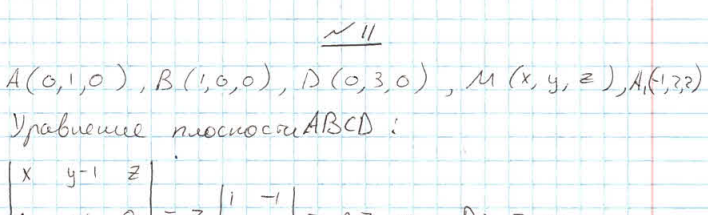 № 11
A(0,1,0), B(1,0,0), D(0,3,0), M(x,y,z), A₁(-1,2,2)
Уравнение плоскости ABCD:
| x y-1 z |
| 1 -1 |